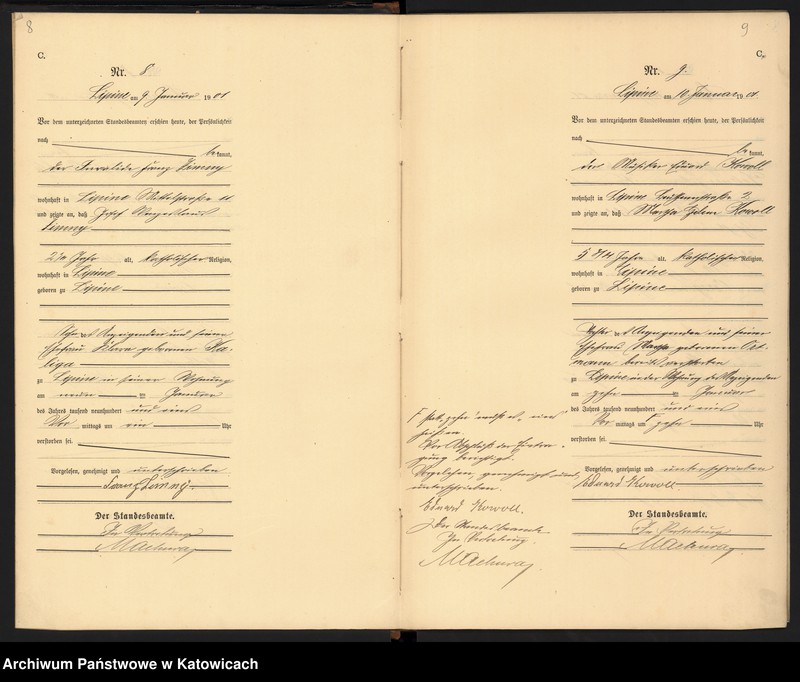 8
C.
Nr. 8
Lipine am 9 Januar 1901
Vor dem unterzeichneten Standesbeamten erschien heute, der Persönlichkeit
nach
be kannt,
der Invalide Franz
wohnhaft in Lipine Mittelstraße
und zeigte an, daß Josef
alt, katholischer Religion,
wohnhaft in Lipine
geboren zu Lipine
Sohn des Anzeigenden und seiner
Ehefrau Klara geborenen Ka-
liga
zu Lipine in seiner Wohnung
am neun ten Januar
des Jahres tausend neunhundert und eins
Vor mittags um ein Uhr
verstorben sei.
Vorgelesen, genehmigt und unterschrieben
Franz
Der Standesbeamte.
In Vertretung
Machura
9
C.
Nr. 9
Lipine am 10 Januar 1901
Vor dem unterzeichneten Standesbeamten erschien heute, der Persönlichkeit
nach
be kannt,
der Musiker Eduard Kowoll
wohnhaft in Lipine
und zeigte an, daß Martha Helene Kowoll
Jahre alt, katholischer Religion,
wohnhaft in Lipine
geboren zu Lipine
Tochter des Anzeigenden und seiner
Ehefrau Martha geborenen
bereits verstorben
zu Lipine in der Wohnung des Anzeigenden
am zehn ten Januar
des Jahres tausend neunhundert und eins
Vor mittags um F zehn Uhr
verstorben sei.
Vorgelesen, genehmigt und unterschrieben
Eduard Kowoll
Der Standesbeamte.
In Vertretung
Machura
F statt zehn muß es ein
heißen.
Vor Abschluß der Eintra-
gung berichtigt.
Vorgelesen, genehmigt und
unterschrieben.
Eduard Kowoll.
Der Standesbeamte
In Vertretung.
Machura
Archiwum Państwowe w Katowicach